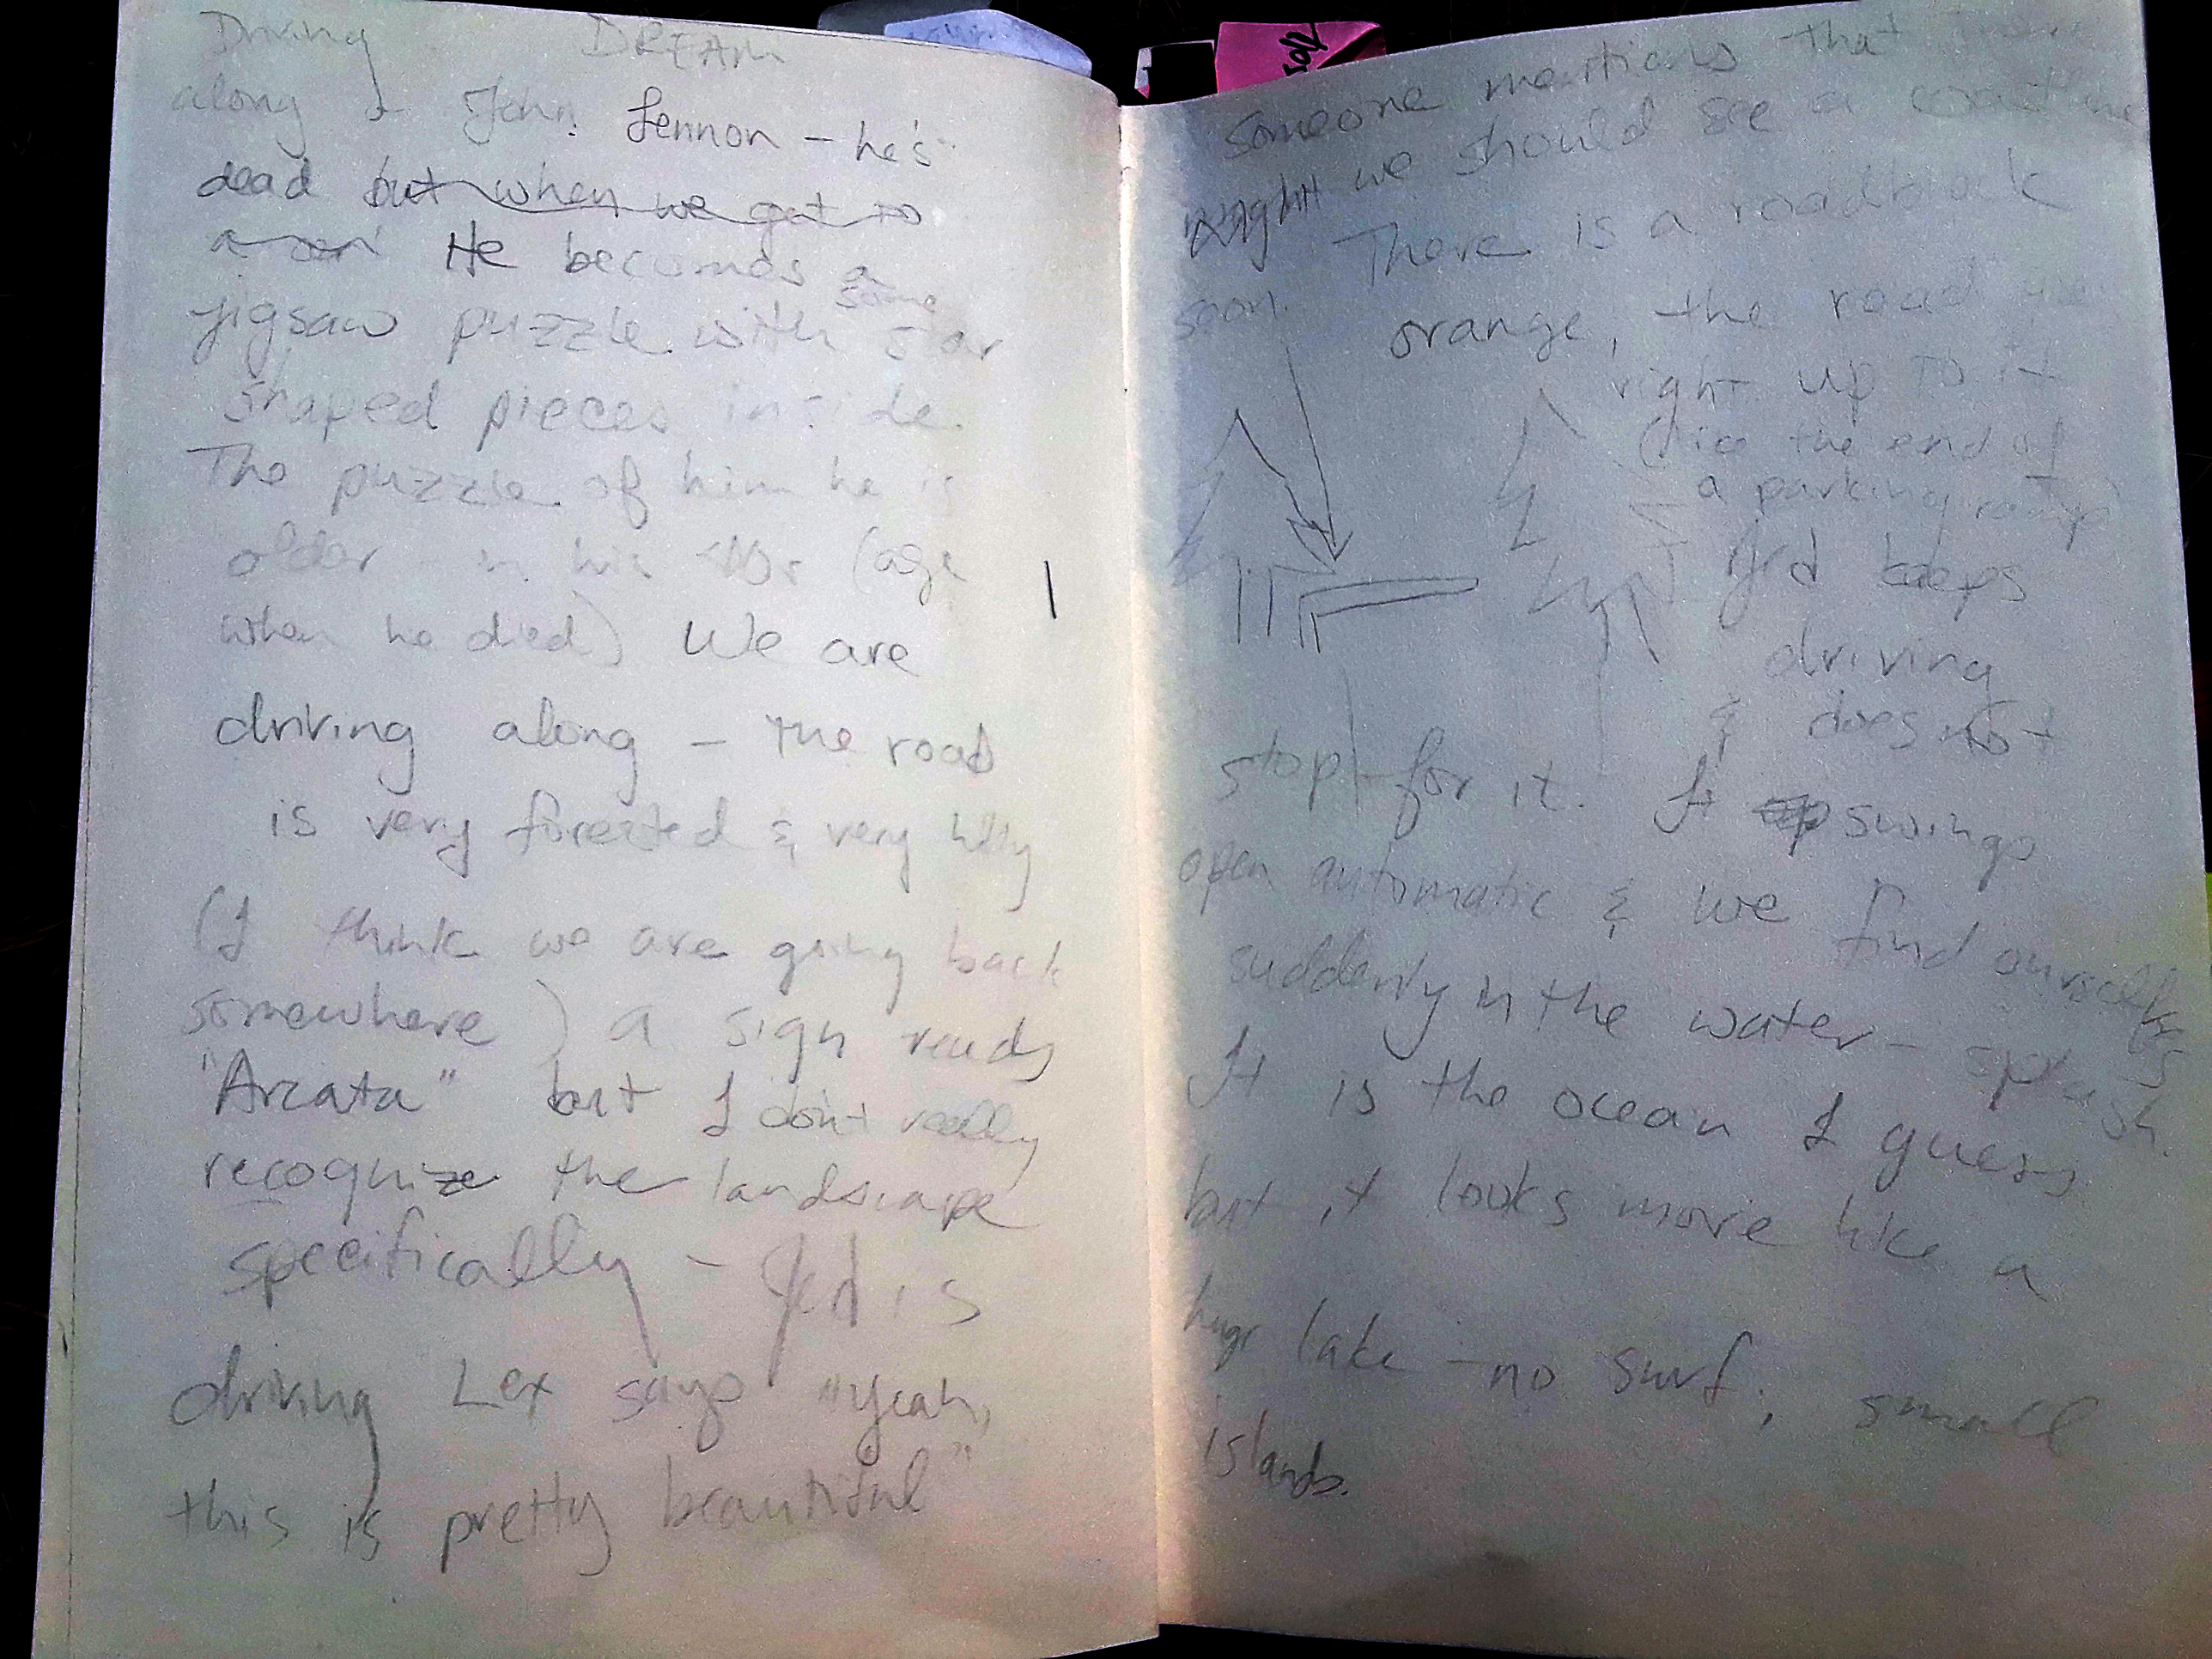 Driving DREAM
along & John Lennon – he's
dead but when we got to
a He becomes a
some
jigsaw puzzle with star
shaped pieces inside.
The puzzle of him he is
older – in his 40s (age
when he died) We are
driving along – the road
is very forested & very hilly
(I think we are going back
somewhere) a sign reads
"Arcata" but I don't really
recognize the landscape
specifically – Jed is
driving Lex says "yeah,
this is pretty beautiful"
someone mentions that
right we should see a
soon. There is a roadblock
orange, the road
right up to it
(like the end of
a parking ramp)
Jed keeps
driving
& does not
stop for it. It swings
open automatic & we find ourselves
suddenly in the water – splash.
It is the ocean I guess
but it looks more like a
huge lake – no surf, small
islands.